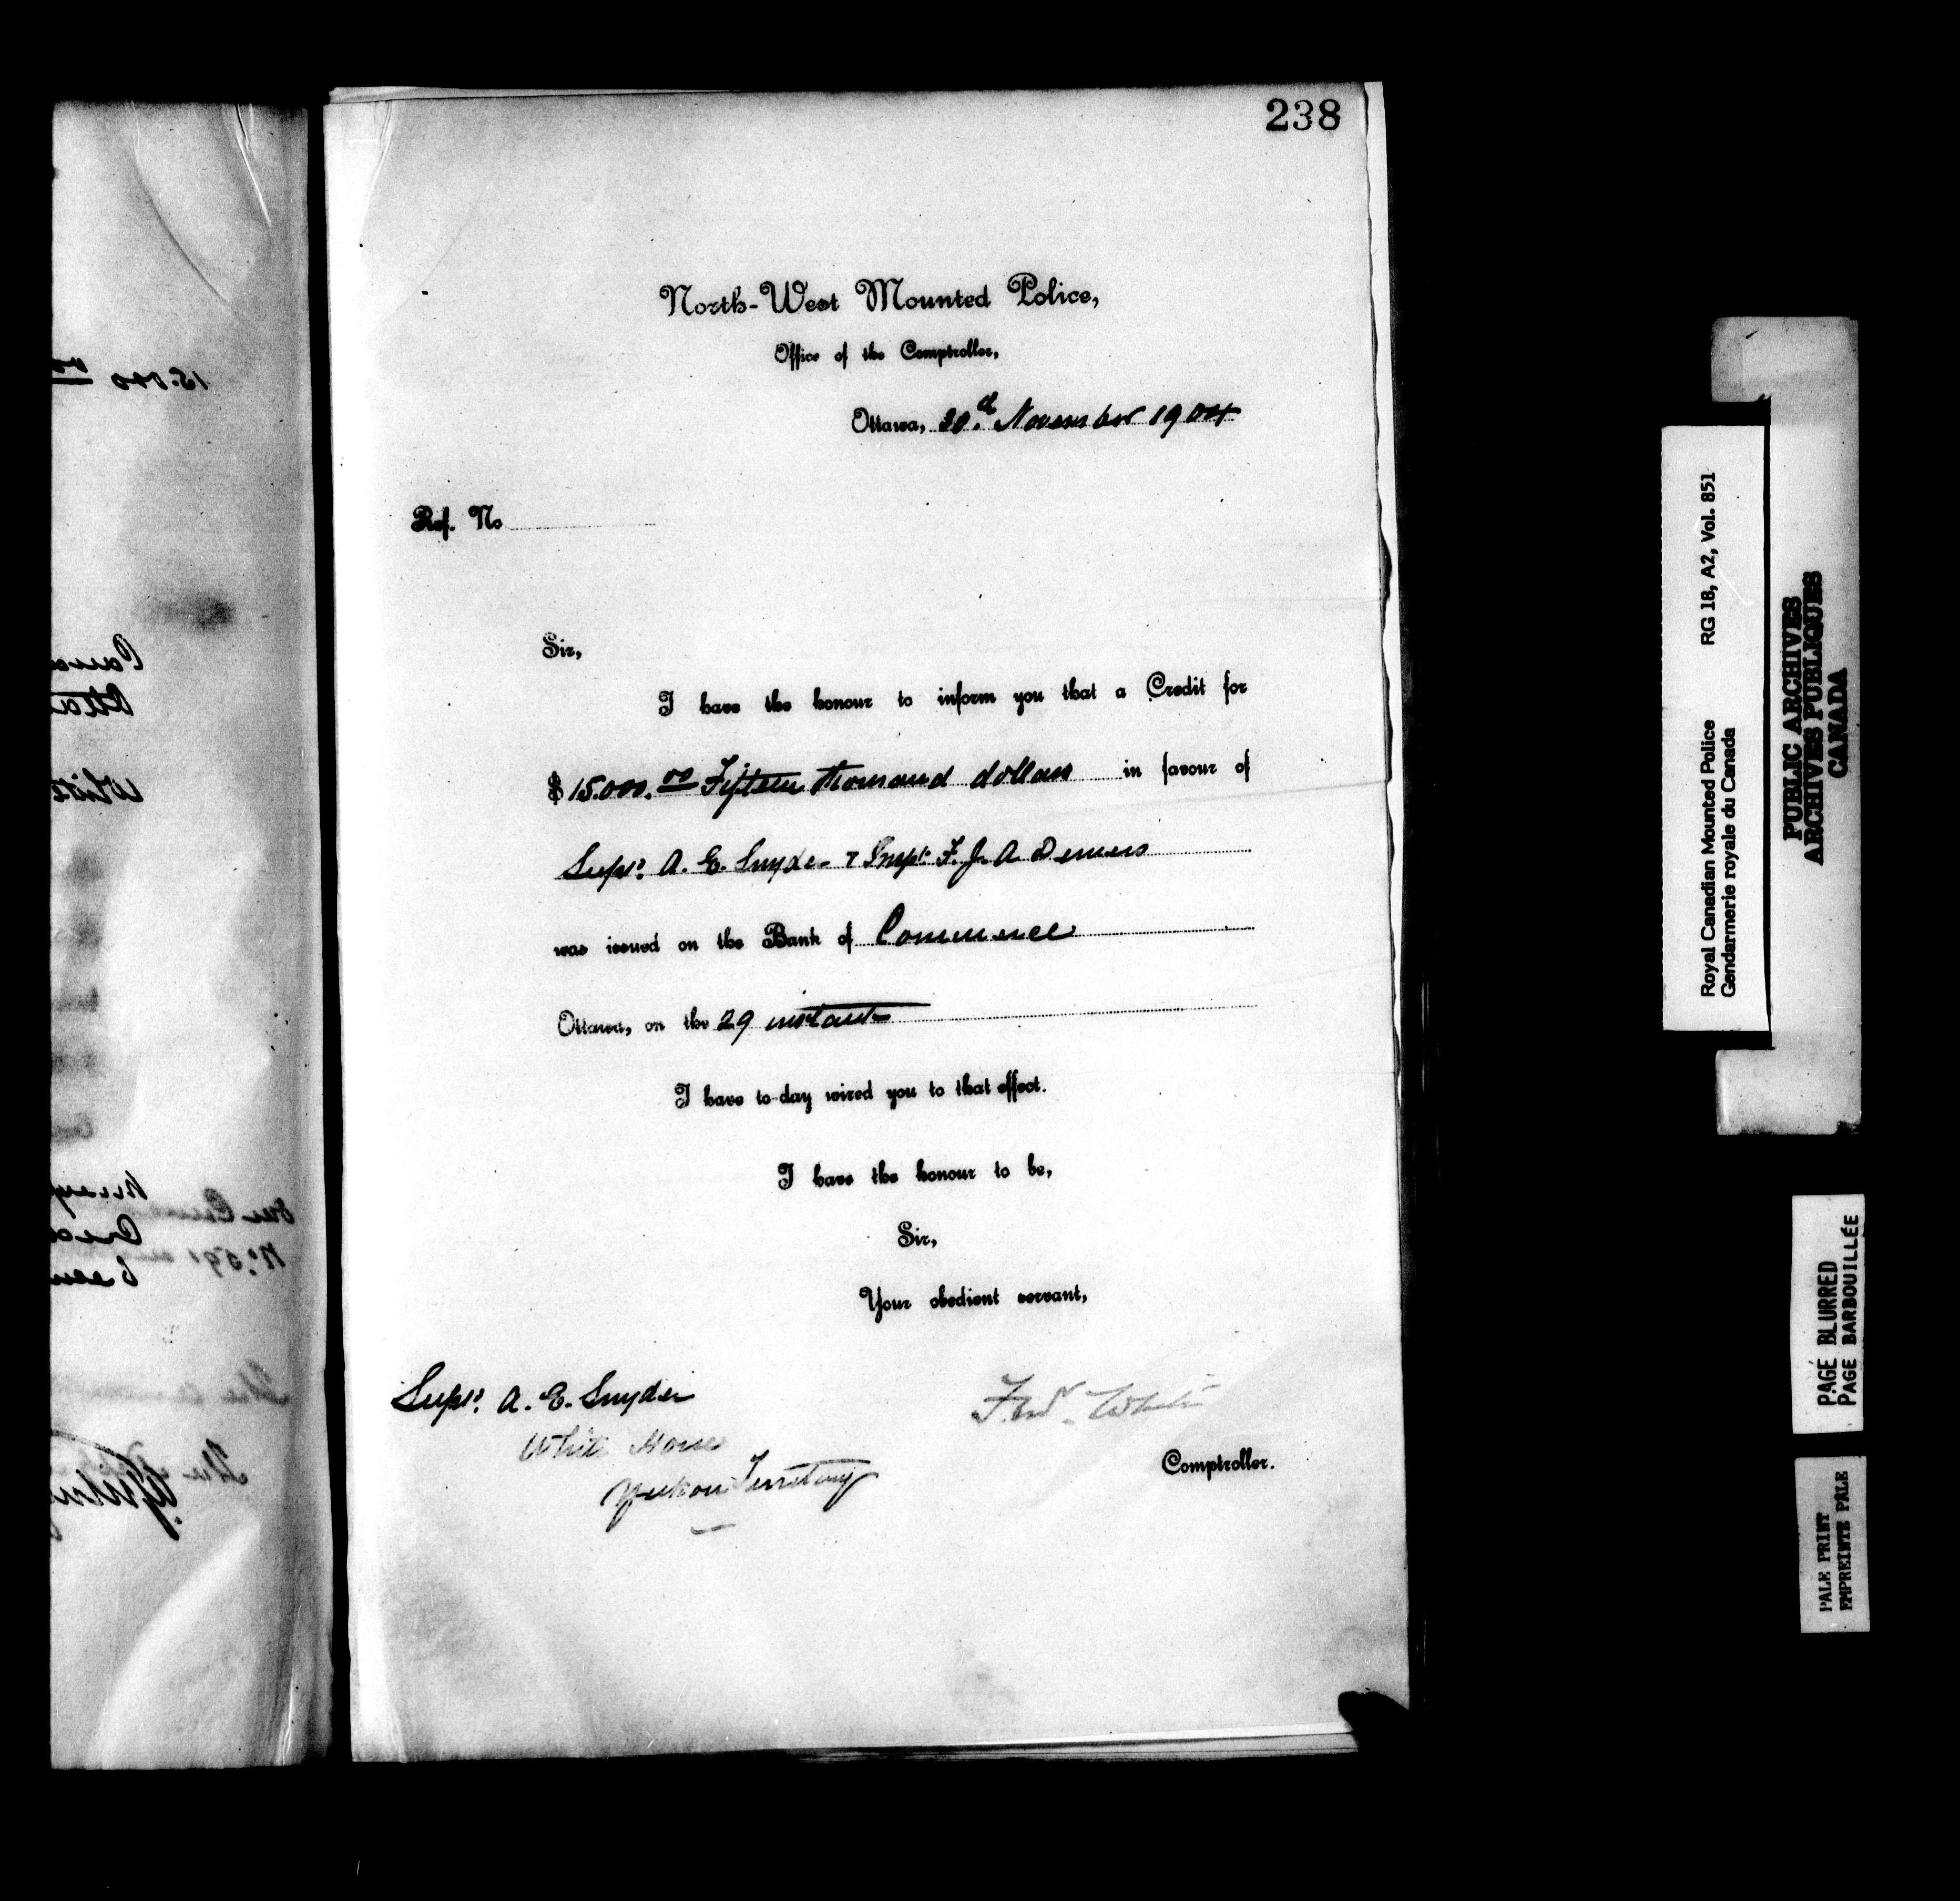 238
North-West Mounted Police,
Office of the Comptroller,
Ottawa, 30th November 1904
Ref. No
Sir,
I have the honour to inform you that a Credit for
$ 15.000.00 Fifteen thousand dollars in favour of
Supt. A. E. Snyder & Insp. F. J. A Demers
was issued on the Bank of Commerce
Ottawa, on the 29 instant
I have to-day wired you to that effect.
I have the honour to be,
Sir,
Your obedient servant,
Fred White
Comptroller.
Supt. A. E. Snyder
White Horse
Yukon Territory
15.000 00
White
Royal Canadian Mounted Police RG 18, A2, Vol. 851
Gendarmerie royale du Canada
PUBLIC ARCHIVES
ARCHIVES PUBLIQUES
CANADA
PAGE BLURRED
PAGE BARBOUILLÉE
PALE PRINT
EMPREINTE PÂLE